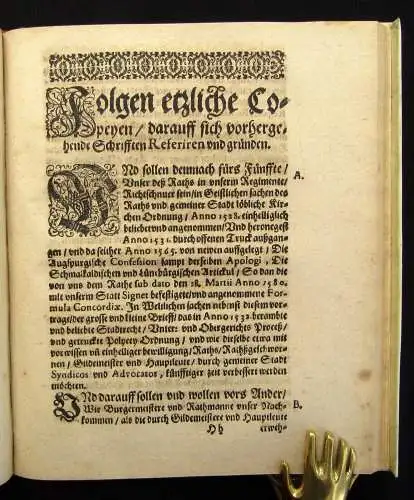 Folgen etzliche Co-
peyen / darauff sich vorherge-
hende Schrifften Referiren vnd gründen.
UNd sollen demnach fürs Fünffte / A.
Vnser deß Raths in vnserm Regimente /
Richtschnuer sein / in Geistlichen sachen des
Raths vnd gemeiner Stadt löbliche Kir-
chen Ordnung / Anno 1528. einhelliglich
beliebt vnd angenommen / Vnd hernegest
Anno 1531. durch offenen Truck außgan-
gen / vnd da seither Anno 1565. von newen auffgelegt / Die
Augspurgische Confession sampt derselben Apologi, Die
Schmalkaldischen vnd Lünebürgischen Articul / So dan die
von vns dem Rathe sub dato den 18. Martii Anno / 580.
mit vnserm Statt Signet befestigete / vnd angenommene For-
mula Concordiæ. In Weltlichen sachen nebinst diesem vor-
trage / der grosse vnd kleine Brieff / das in Anno 1532. berambte
vnd beliebte Stadtrecht / Vnter: vnd Obergerichts Proceß /
vnd getruckte Policey Ordnung / vnd wie dieselbe etwa mit
vorwissen vñ einhelliger bewilligung / Raths / Rathßgeschwor-
nen / Gildemeister vnd Hauptleute / durch gemeiner Stadt
Syndicos vnd Advocaten, künfftiger zeit verbessert werden
möchten.
UNd darauff sollen vnd wollen vors Ander / B.
Wir Burgermeistere vnd Rathmanne vnser Nach-
kommen / als die durch Gildemeistere vnd Hauptleute
Hh erweh-